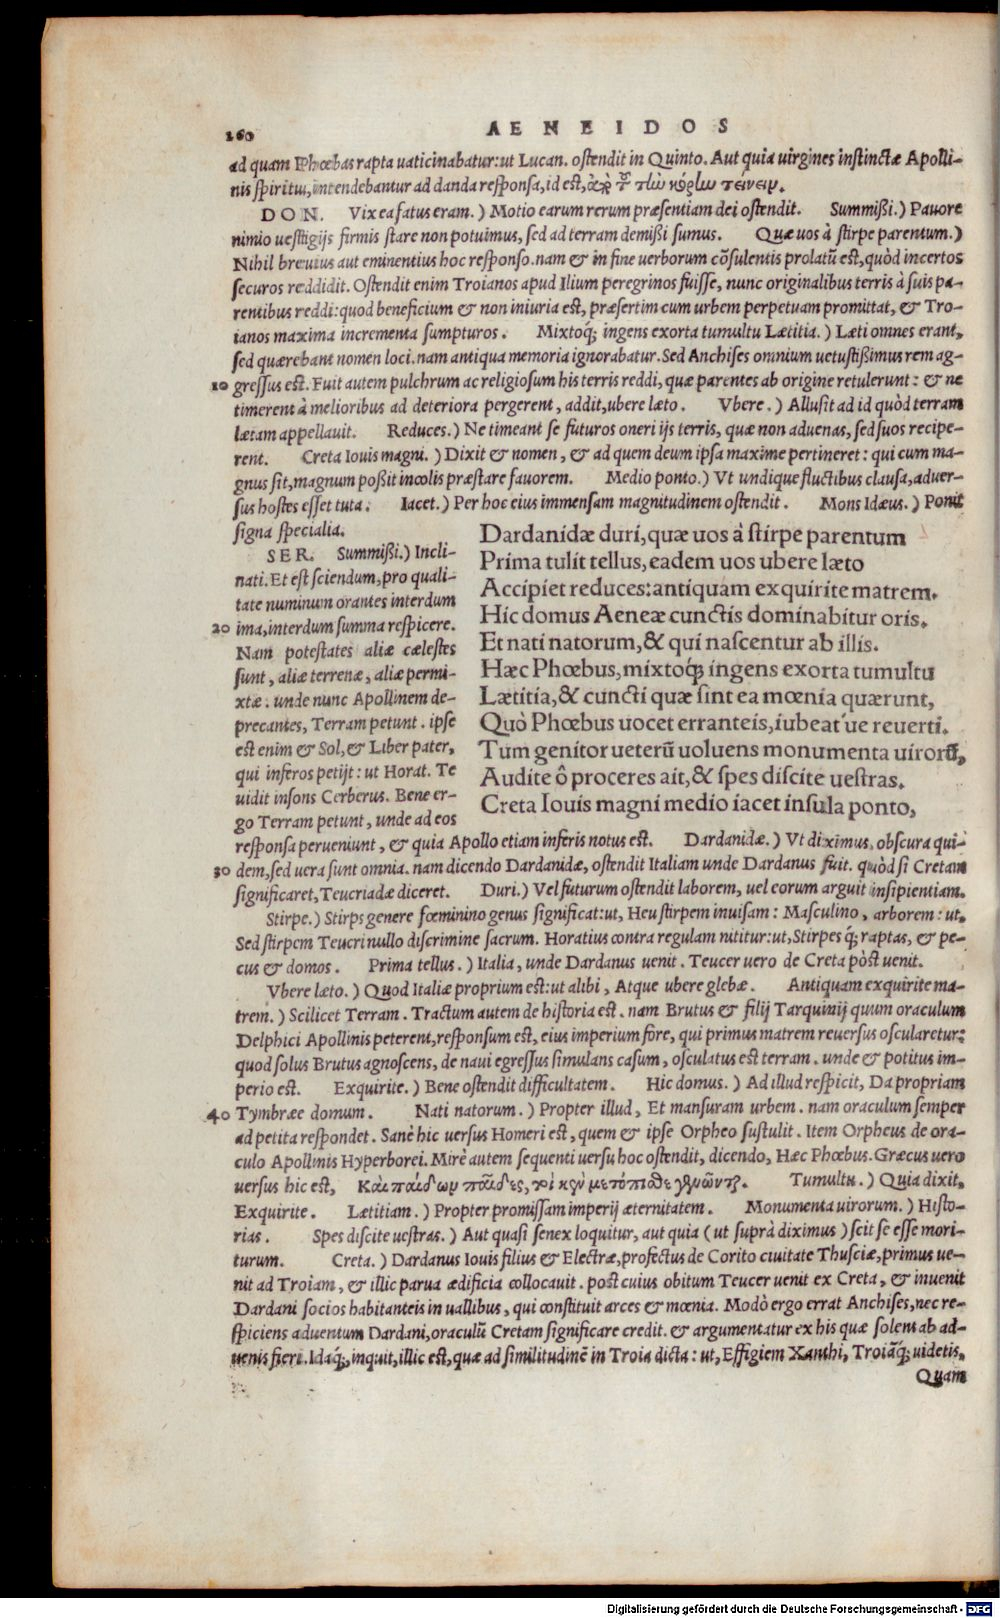 260 AENEIDOS
ad quam Phœbas rapta uaticinabatur: ut Lucan. ostendit in Quinto. Aut quia uirgines instinctæ Apolli-
nis spiritu, intendebantur ad danda responsa, id est,
DON. Vix ea fatus eram.) Motio earum rerum præsentiam dei ostendit. Summißi.) Pauore
nimio uestigijs firmis stare non potuimus, sed ad terram demißi sumus. Quæ uos à stirpe parentum.)
Nihil breuius aut eminentius hoc responso. nam & in fine uerborum cõsulentis prolatũ est, quòd incertos
securos reddidit. Ostendit enim Troianos apud Ilium peregrinos fuisse, nunc originalibus terris à suis pa-
rentibus reddi: quod beneficium & non iniuria est, præsertim cum urbem perpetuam promittat, & Tro-
ianos maxima incrementa sumpturos. Mixtoq́; ingens exorta tumultu Lætitia.) Læti omnes erant,
sed quærebant nomen loci. nam antiqua memoria ignorabatur. Sed Anchises omnium uetustißimus rem ag-
10 gressus est. Fuit autem pulchrum ac religiosum his terris reddi, quæ parentes ab origine retulerunt: & ne
timerent à melioribus ad deteriora pergerent, addit, ubere læto. Vbere.) Allusit ad id quòd terram
lætam appellauit. Reduces.) Ne timeant se futuros oneri ijs terris, quæ non aduenas, sed suos recipe-
rent. Creta Iouis magni.) Dixit & nomen, & ad quem deum ipsa maxime pertineret: qui cum ma-
gnus sit, magnum poßit incolis præstare fauorem. Medio ponto.) Vt undique fluctibus clausa, aduer-
sus hostes esset tuta. Iacet.) Per hoc eius immensam magnitudinem ostendit. Mons Idæus.) Ponit
signa specialia.
SER. Summißi.) Incli-
nati. Et est sciendum, pro quali-
tate numinum orantes interdum
20 ima, interdum summa respicere.
Nam potestates aliæ cælestes
sunt, aliæ terrenæ, aliæ permi-
xtæ. unde nunc Apollinem de-
precantes, Terram petunt. ipse
est enim & Sol, & Liber pater,
qui inferos petijt: ut Horat. Te
uidit insons Cerberus. Bene er-
go Terram petunt, unde ad eos
Dardanidæ duri, quæ uos à stirpe parentum
Prima tulit tellus, eadem uos ubere læto
Accipiet reduces: antiquam exquirite matrem.
Hic domus Aeneæ cunctis dominabitur oris.
Et nati natorum, & qui nascentur ab illis.
Hæc Phœbus, mixtoq́; ingens exorta tumultu
Lætitia, & cuncti quæ sint ea mœnia quærunt,
Quò Phœbus uocet erranteis, iubeat́ue reuerti.
Tum genitor ueterũ uoluens monumenta uirorũ,
Audite ô proceres ait, & spes discite uestras.
Creta Iouis magni medio iacet insula ponto,
responsa perueniunt, & quia Apollo etiam inferis notus est. Dardanidæ.) Vt diximus, obscura qui-
30 dem, sed uera sunt omnia. nam dicendo Dardanidæ, ostendit Italiam unde Dardanus fuit. quòd si Cretam
significaret, Teucriadæ diceret. Duri.) Vel futurum ostendit laborem, uel eorum arguit insipientiam.
Stirpe.) Stirps genere fœminino genus significat: ut, Heu stirpem inuisam: Masculino, arborem: ut,
Sed stirpem Teucri nullo discrimine sacrum. Horatius contra regulam nititur: ut, Stirpes q́; raptas, & pe-
cus & domos. Prima tellus.) Italia, unde Dardanus uenit. Teucer uero de Creta pòst uenit.
Vbere læto.) Quod Italiæ proprium est: ut alibi, Atque ubere glebæ. Antiquam exquirite ma-
trem.) Scilicet Terram. Tractum autem de historia est. nam Brutus & filij Tarquinij quum oraculum
Delphici Apollinis peterent, responsum est, eius imperium fore, qui primus matrem reuersus oscularetur:
quod solus Brutus agnoscens, de naui egressus simulans casum, osculatus est terram. unde & potitus im-
perio est. Exquirite.) Bene ostendit difficultatem. Hic domus.) Ad illud respicit, Da propriam
40 Tymbræe domum. Nati natorum.) Propter illud, Et mansuram urbem. nam oraculum semper
ad petita respondet. Sanè hic uersus Homeri est, quem & ipse Orpheo sustulit. Item Orpheus de ora-
culo Apollinis Hyperborei. Mirè autem sequenti uersu hoc ostendit, dicendo, Hæc Phœbus. Græcus uero
uersus hic est, Καὶ παίδων παῖδες, τοί κεν μετόπισθε γένωνται. Tumultu.) Quia dixit,
Exquirite. Lætitiam.) Propter promissam imperij æternitatem. Monumenta uirorum.) Histo-
rias. Spes discite uestras.) Aut quasi senex loquitur, aut quia (ut suprà diximus) scit se esse mori-
turum. Creta.) Dardanus Iouis filius & Electræ, profectus de Corito ciuitate Thusciæ, primus ue-
nit ad Troiam, & illic parua ædificia collocauit. post cuius obitum Teucer uenit ex Creta, & inuenit
Dardani socios habitanteis in uallibus, qui constituit arces & mœnia. Modò ergo errat Anchises, nec re-
spiciens aduentum Dardani, oraculũ Cretam significare credit. & argumentatur ex his quæ solent ab ad-
uenis fieri. Idaq́;, inquit, illic est, quæ ad similitudinẽ in Troia dicta: ut, Effigiem Xanthi, Troiãq́; uidetis.
Quam
Digitalisierung gefördert durch die Deutsche Forschungsgemeinschaft - DFG